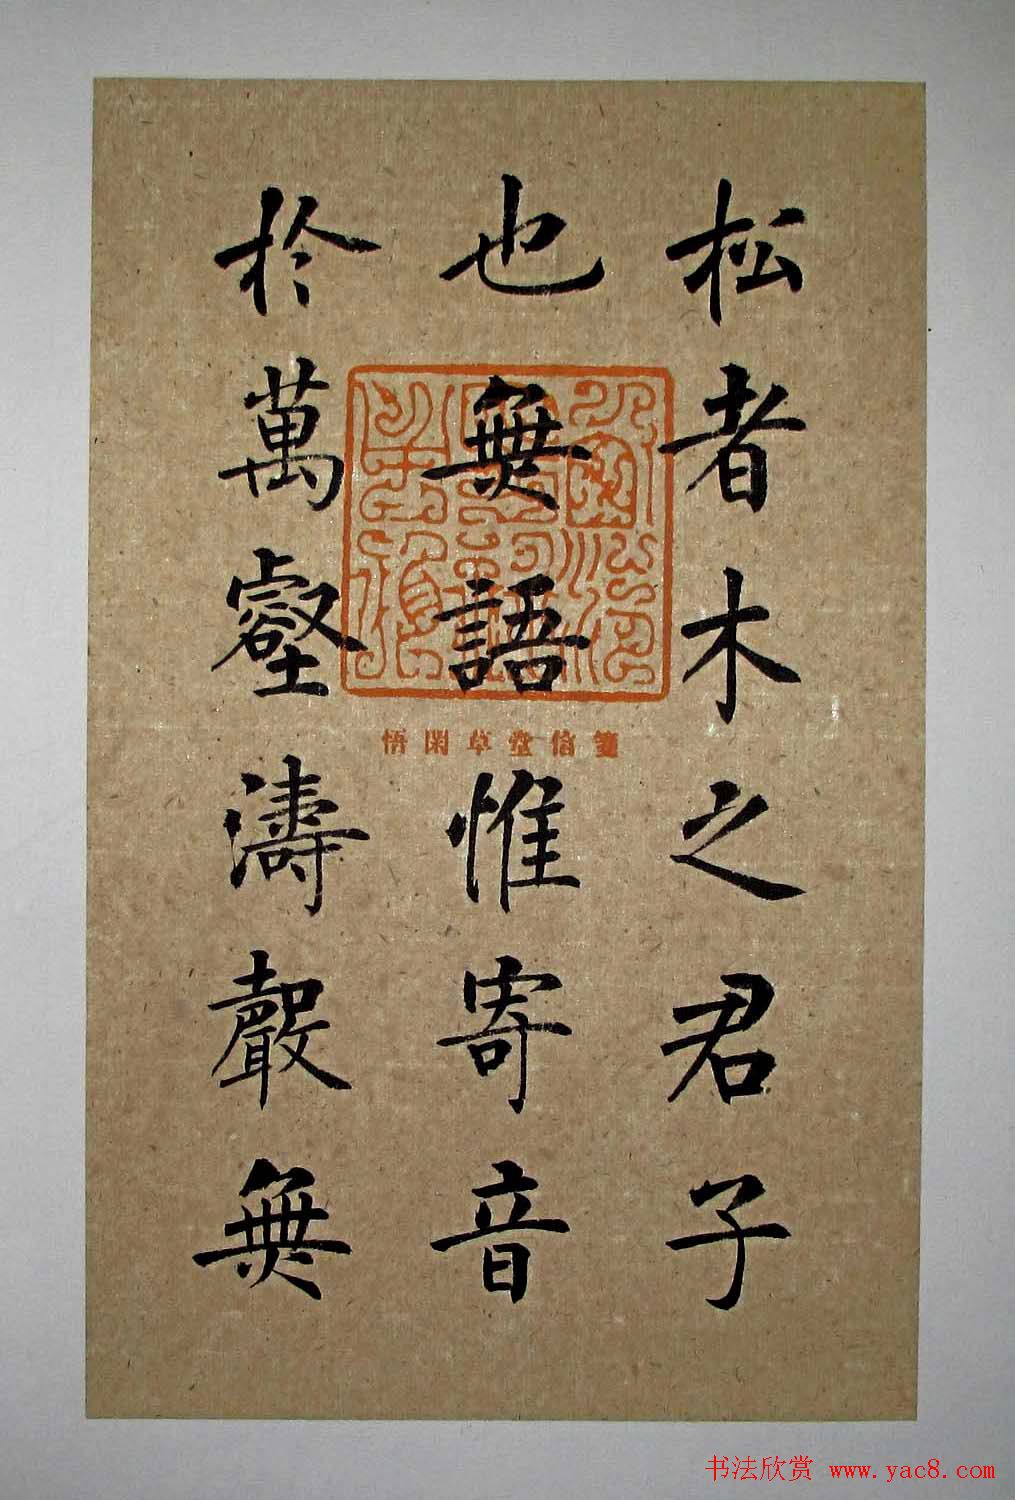 松者木之君子
也無語惟寄音
於萬壑濤聲無
悟閑草堂信箋
书法欣赏 www.yac8.com